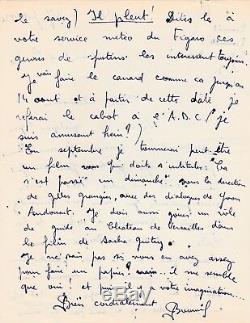 le savez) Il pleut! Dites le à
votre service météo du Figaro ces
genres de "potins" les intéressent toujours.
je vais faire le canard comme ça jusqu'au
14 aout et à partir de cette date je
referai le cabot à l'"A.B.C." je
suis amusant hein?)
"En septembre je tournerai peut être
un film qui doit s'intituler: "Ça
s'est passé un dimanche" sous la direction
de Gilles Grangier, avec des dialogues de Yvan
Audouard. Je dois aussi jouer un rôle
de guide au Chateau de Versailles dans
le film de Sacha Guitry.
Je ne sais pas si vous en avez assez
pour faire un papier? mais.. il me semble
que oui! et puis il y a votre imagination...
Bien cordialement
Bourvil